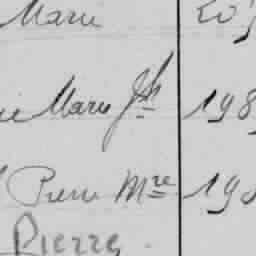 Marie
ie Marie Jph 198
Pierre Mre 19
Pierre